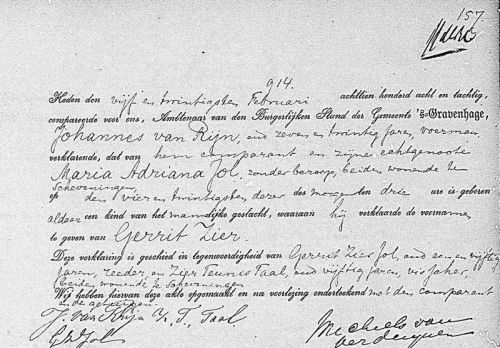 157
914.
Heden den vijf en twintigsten Februari achttien honderd acht en tachtig,
compareerde voor ons, Ambtenaar van den Burgerlijken Stand der Gemeente 's-Gravenhage,
Johannes van Rijn, oud zeven en twintig jaren, voerman,
verklarende, dat van hem comparant en zijne echtgenoote
Maria Adriana Jol, zonder beroep, beiden wonende te
Scheveningen,
op den vier en twintigsten dezer des morgens ten drie ure is geboren
aldaar een kind van het mannelijke geslacht, waaraan hij verklaarde de voornamen
te geven van Gerrit Zier.
Deze verklaring is geschied in tegenwoordigheid van Gerrit Zier Jol, oud een en vijftig
jaren, reeder, en Zijer Teunis Taal, oud vijftig jaren, visscher,
beiden wonende te Scheveningen
Wij hebben hiervan deze akte opgemaakt en na voorlezing onderteekend met den comparant
en de getuigen.
J. van Rijn Z. T. Taal
G Z Jol Michiels van